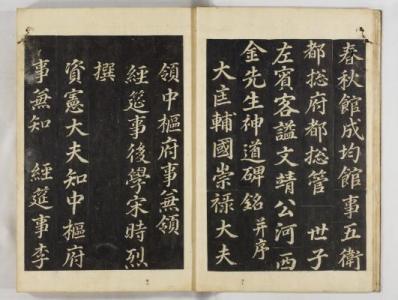 春秋館成均館事五衛
都摠府都摠管 世子
左賓客謚文靖公河西
金先生神道碑銘 并序
大匡輔國崇禄大夫
領中樞府事兼領
經筵事後學宋時烈
撰
資憲大夫知中樞府
事兼知 經筵事李